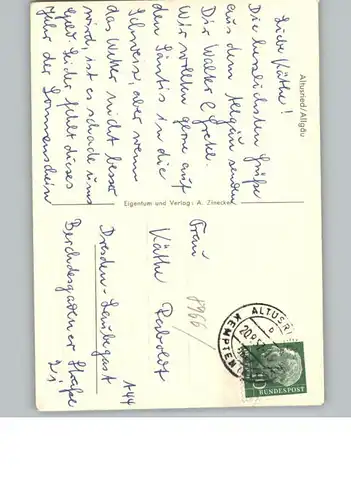 Altusried/Allgäu
Liebe Käthe!
Die herzlichsten Grüße
aus dem Allgäu senden
Dir Walter & Grete.
Wir wollten gerne auf
den Säntis in die
Schweiz, aber wenn
das Wetter nicht besser
wird, ist es schade ums
Geld. Leider fehlt dieses
Jahr der Sonnenschein
Eigentum und Verlag: A. Zinecker
Frau
Käthe
Dresden-Laubegast
Berchtesgadener Straße
8966
ALTUSRI
KEMPTEN
10
BUNDESPOST